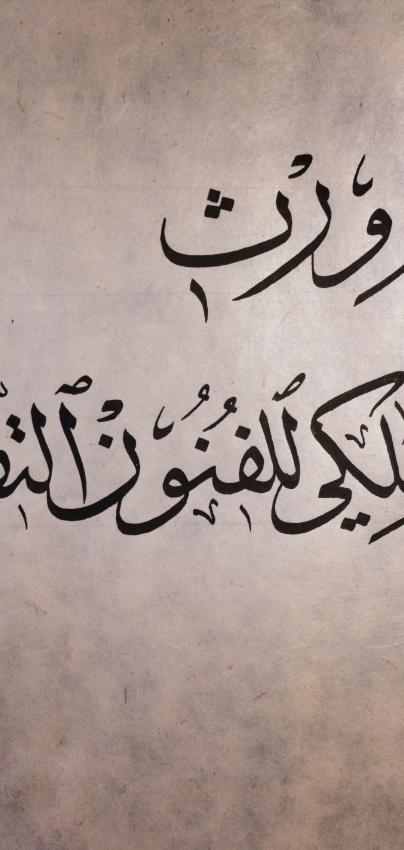 ورْث
لكي للفنُون ٱلتق